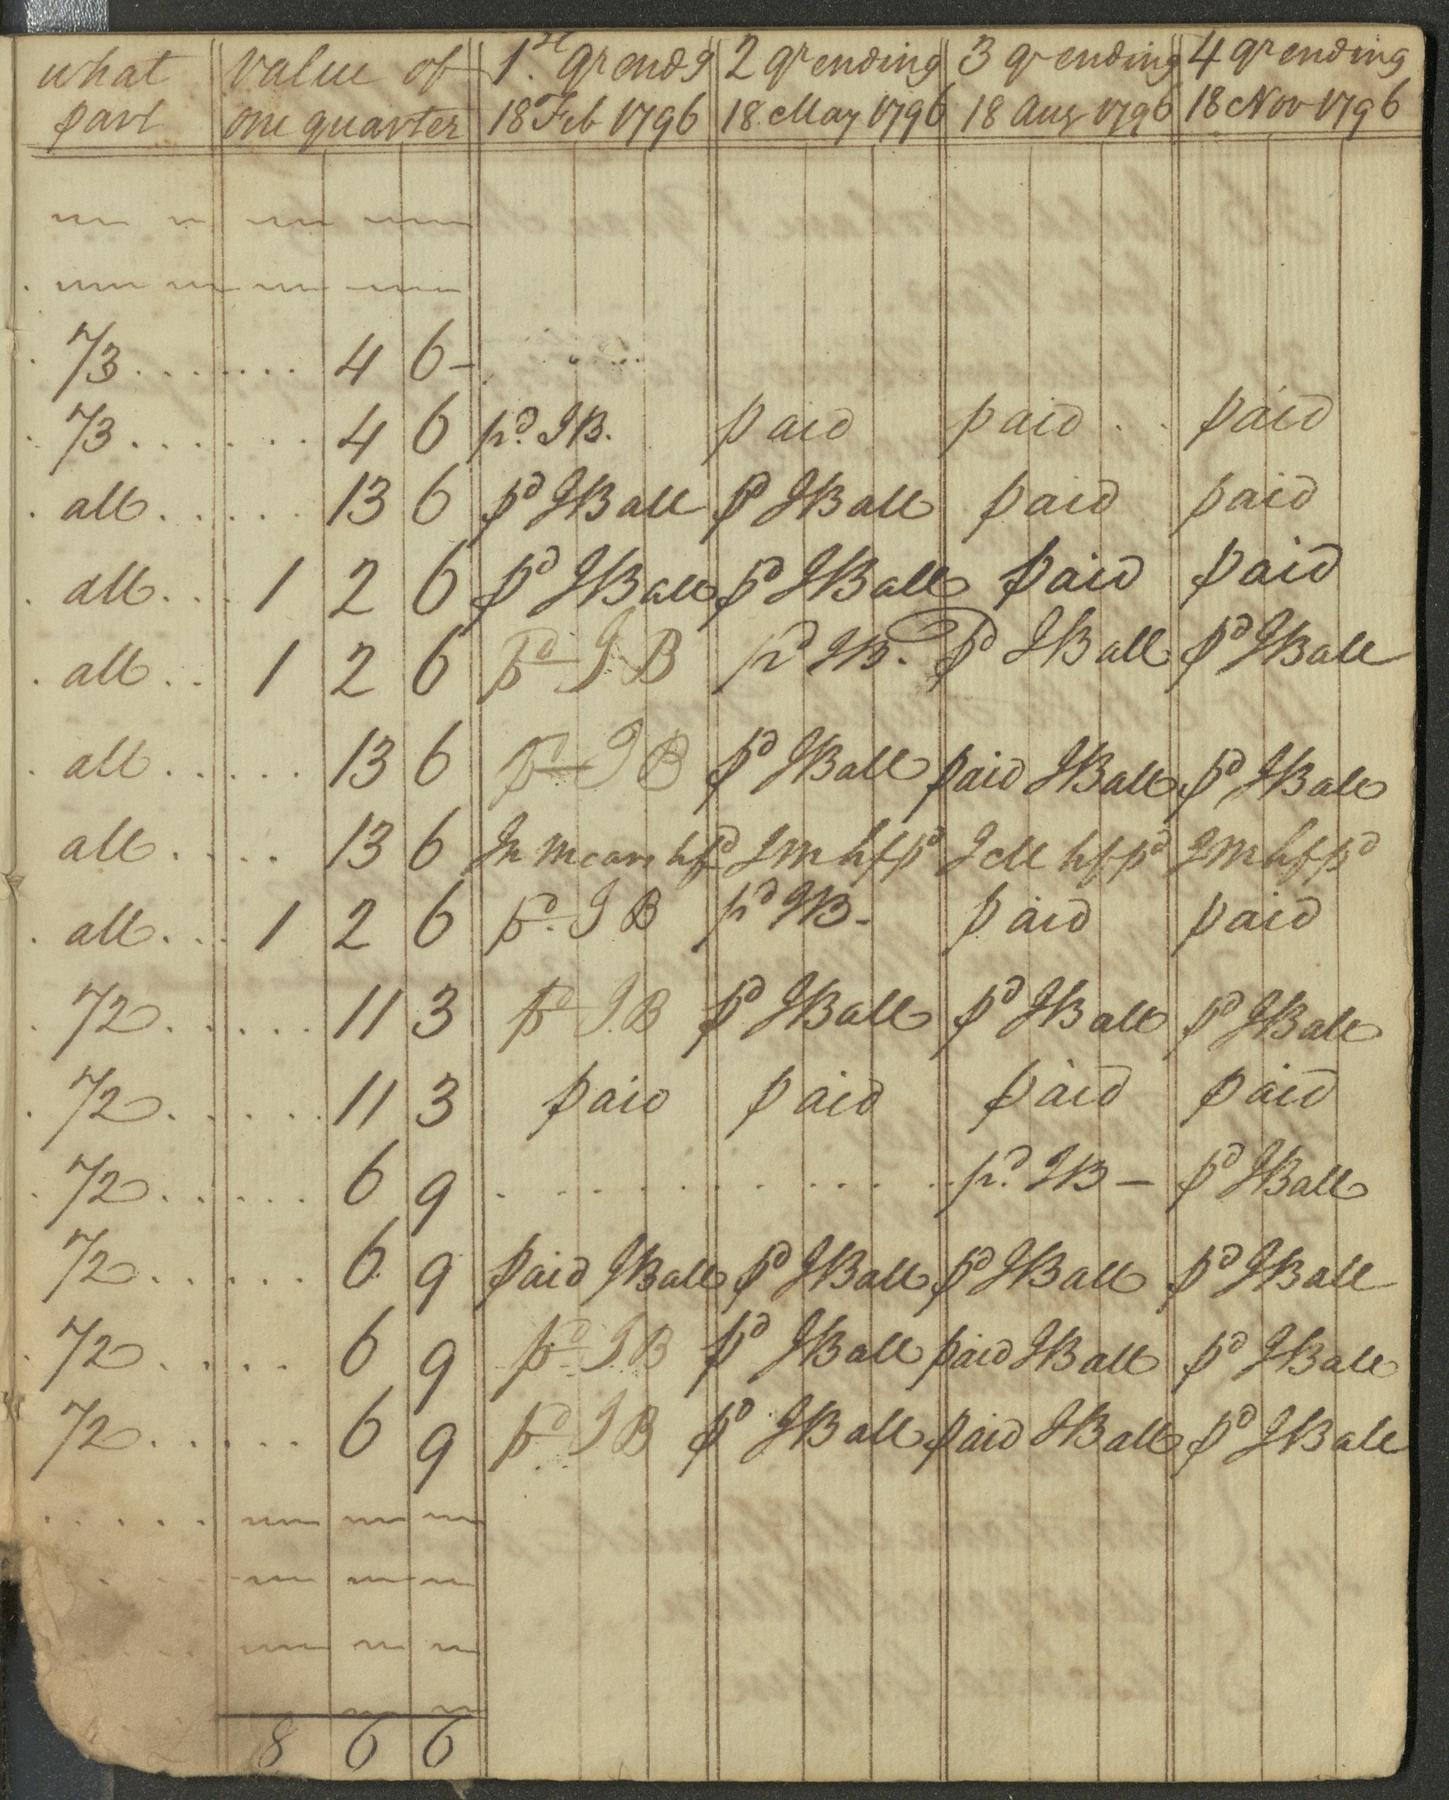 what part | value of one quarter | 1.st qr ends 18 Feb 1796 | 2 qr ending 18 May 1796 | 3 qr ending 18 Aug 1796 | 4 qr ending 18 Nov 1796
1/3 . . . . . . . 4 6 -
1/3 . . . . . . . 4 6 pd. JB. paid paid paid
all . . . . . . 13 6 pd JBall pd JBall paid paid
all . . . 1 2 6 pd JBall pd JBall paid paid
all . . 1 2 6 pd JB pd JB. pd JBall pd JBall
all . . . . . . 13 6 pd JB pd JBall paid JBall pd JBall
all . . . . 13 6 hfpd JM hfpd hfpd JM hfpd
all . . . 1 2 6 pd. JB pd JB - paid paid
1/2 . . . . . . 11 3 pd JB pd JBall pd JBall pd JBall
1/2 . . . . . . 11 3 paid paid paid paid
1/2 . . . . . . 6 9 . . . . . . . . . . pd. JB - pd JBall
1/2 . . . . . . 6 9 paid JBall pd JBall pd JBall pd JBall
1/2 . . . . . 6 9 pd JB pd JBall paid JBall pd JBall
1/2 . . . . . . 6 9 pd JB pd JBall paid JBall pd JBall
8 6 6